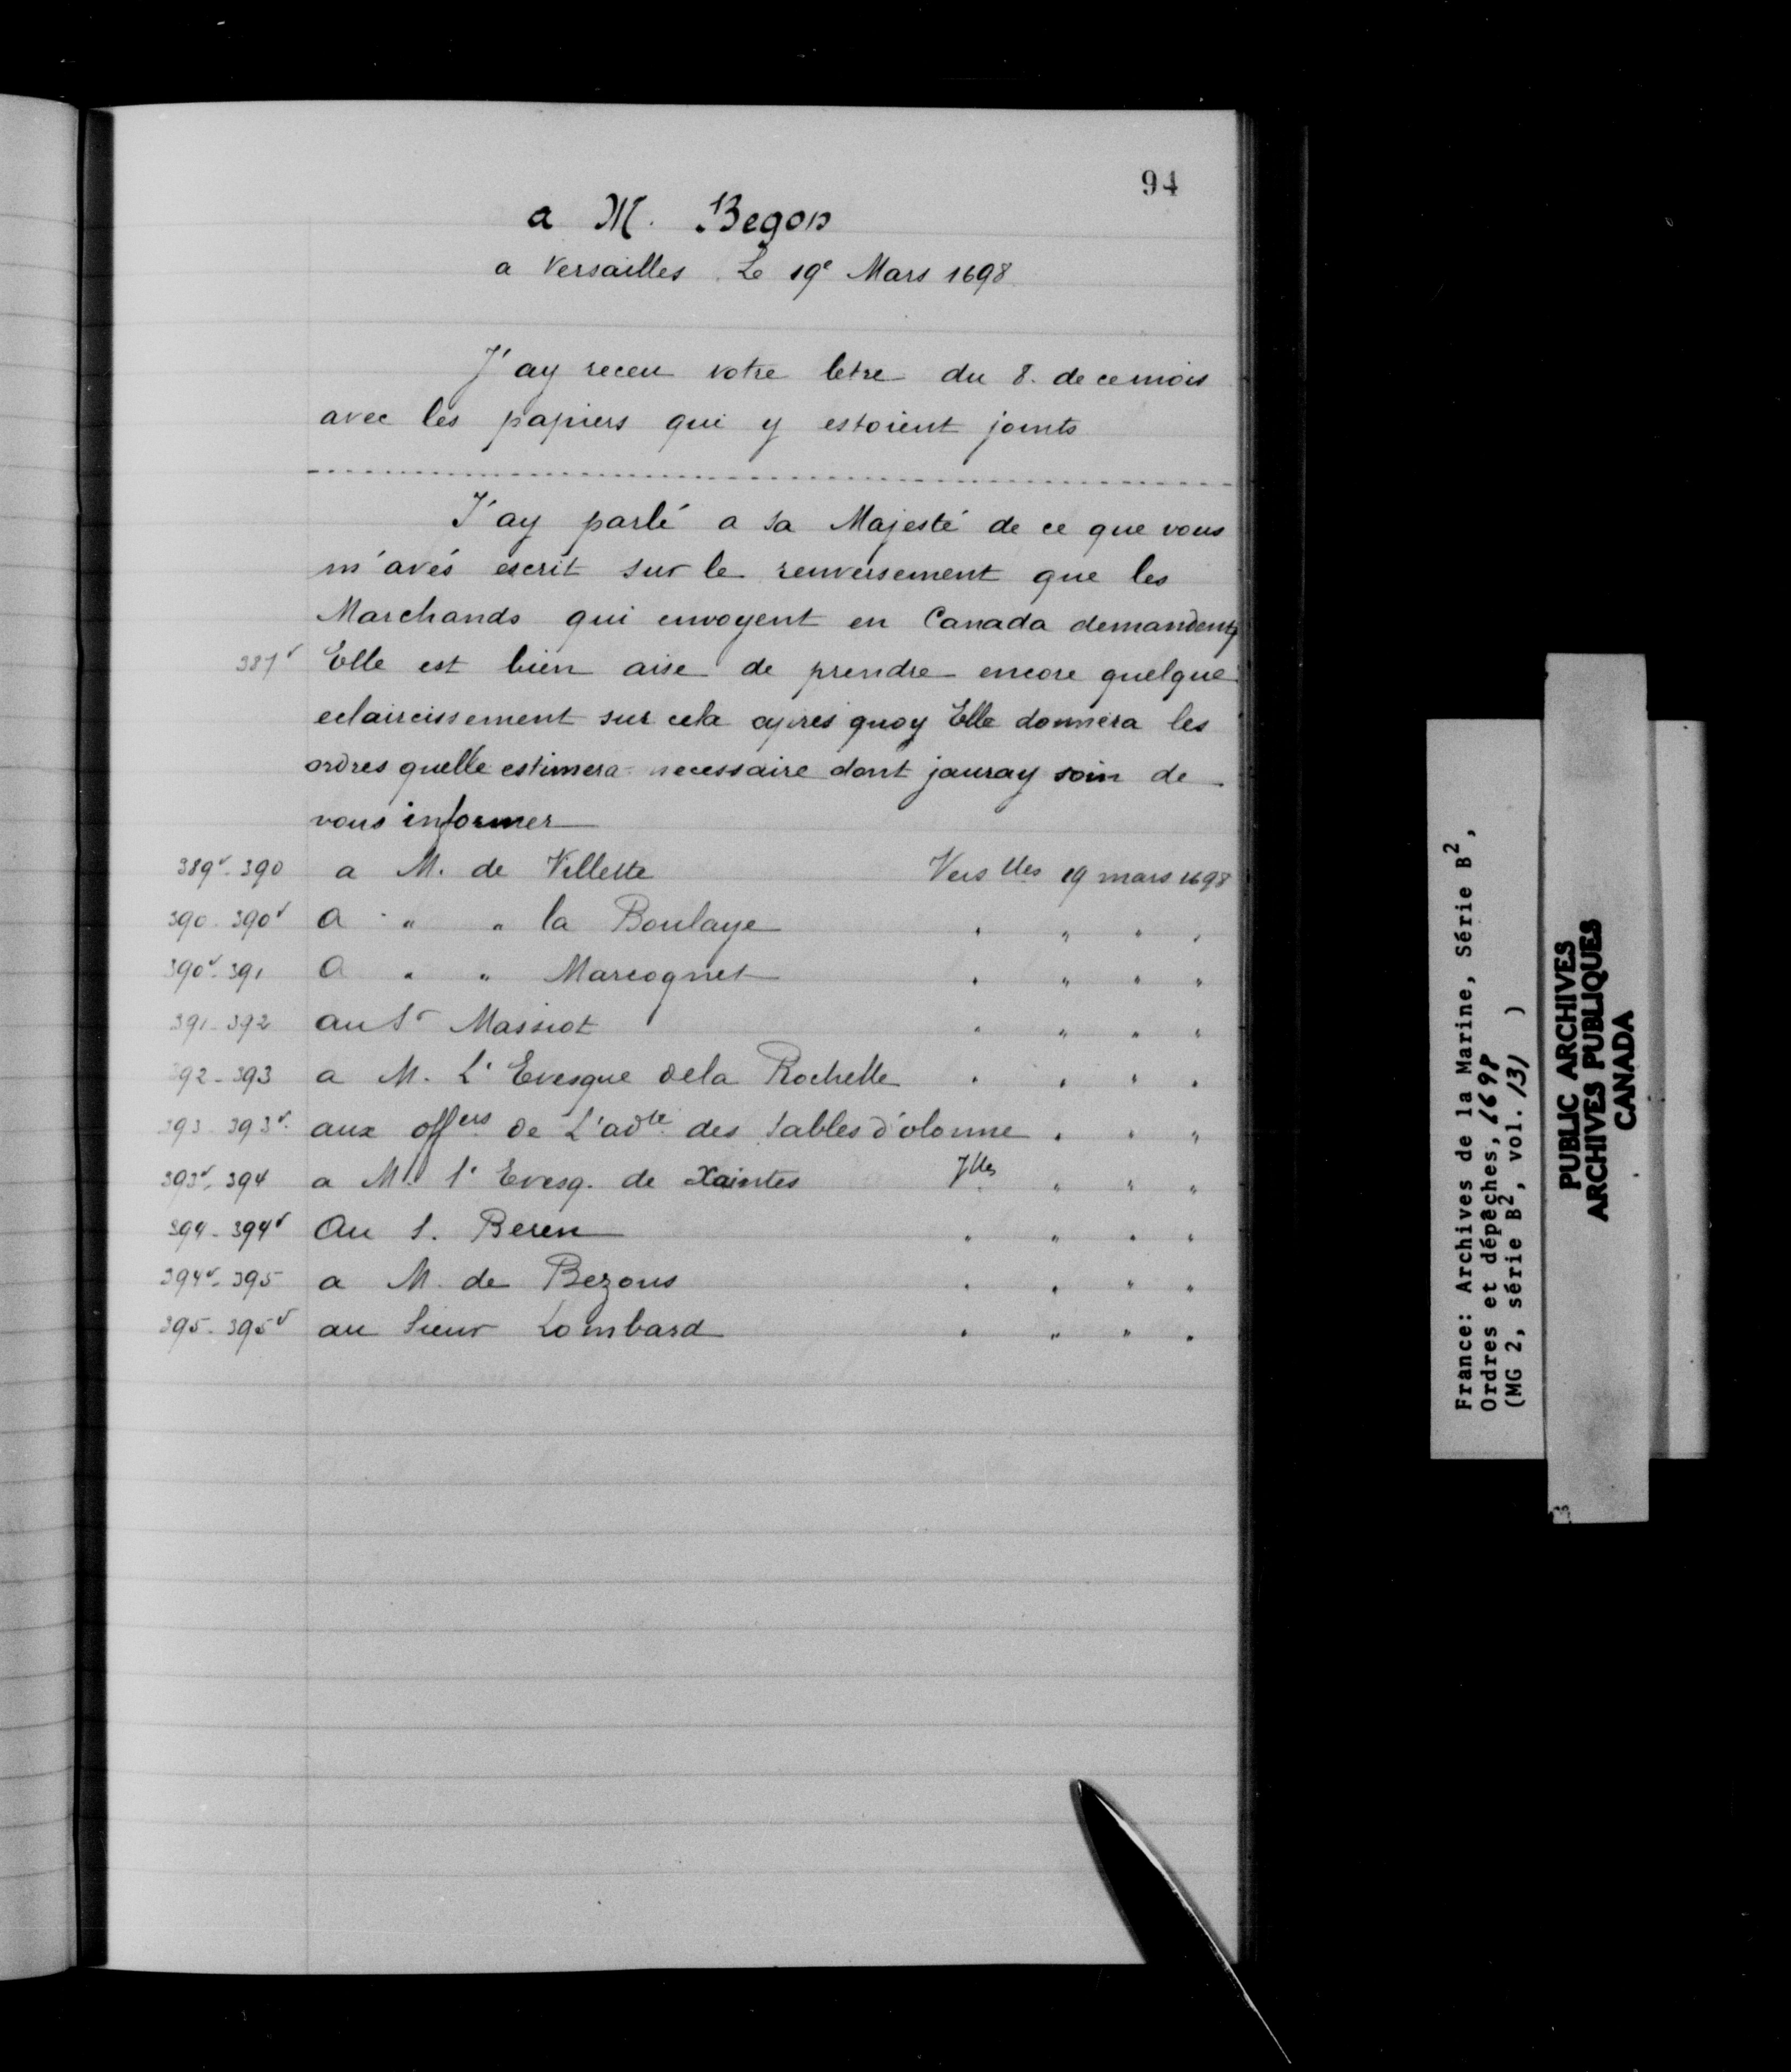 94
a M. Begon
a Versailles Le 19e Mars 1698
J'ay receu votre letre du 8. de ce mois
avec les papiers qui y estoient joints
J'ay parlé a sa Majesté de ce que vous
m'avés escrit sur le renversement que les
Marchands qui envoyent en Canada demandent
387v Elle est bien aise de prendre encore quelque
eclaircissement sur cela apres quoy Elle donnera les
ordres quelle estimera necessaire dont jauray soin de
vous informer
389v-390 a M. de Villette Verslles 19 mars 1698
390-390v a " " la Boulaye " " " "
390v-391 a " " Marcognet " " " "
391-392 au Sr Massiot " " " "
392-393 a M. L'Evesque dela Rochelle " " " "
393-393v aux offers de L'adte des Sables d'olonne " " "
393v-394 a M. l'Evesq. de Xaintes Vlles " " "
394-394v Au S. Beren " " " "
394v-395 a M. de Bezons " " " "
395-395v au Sieur Lombard " " " "
France: Archives de la Marine, Série B2,
Ordres et dépêches, 1698
(MG 2, série B2, vol. 131 )
PUBLIC ARCHIVES
ARCHIVES PUBLIQUES
CANADA